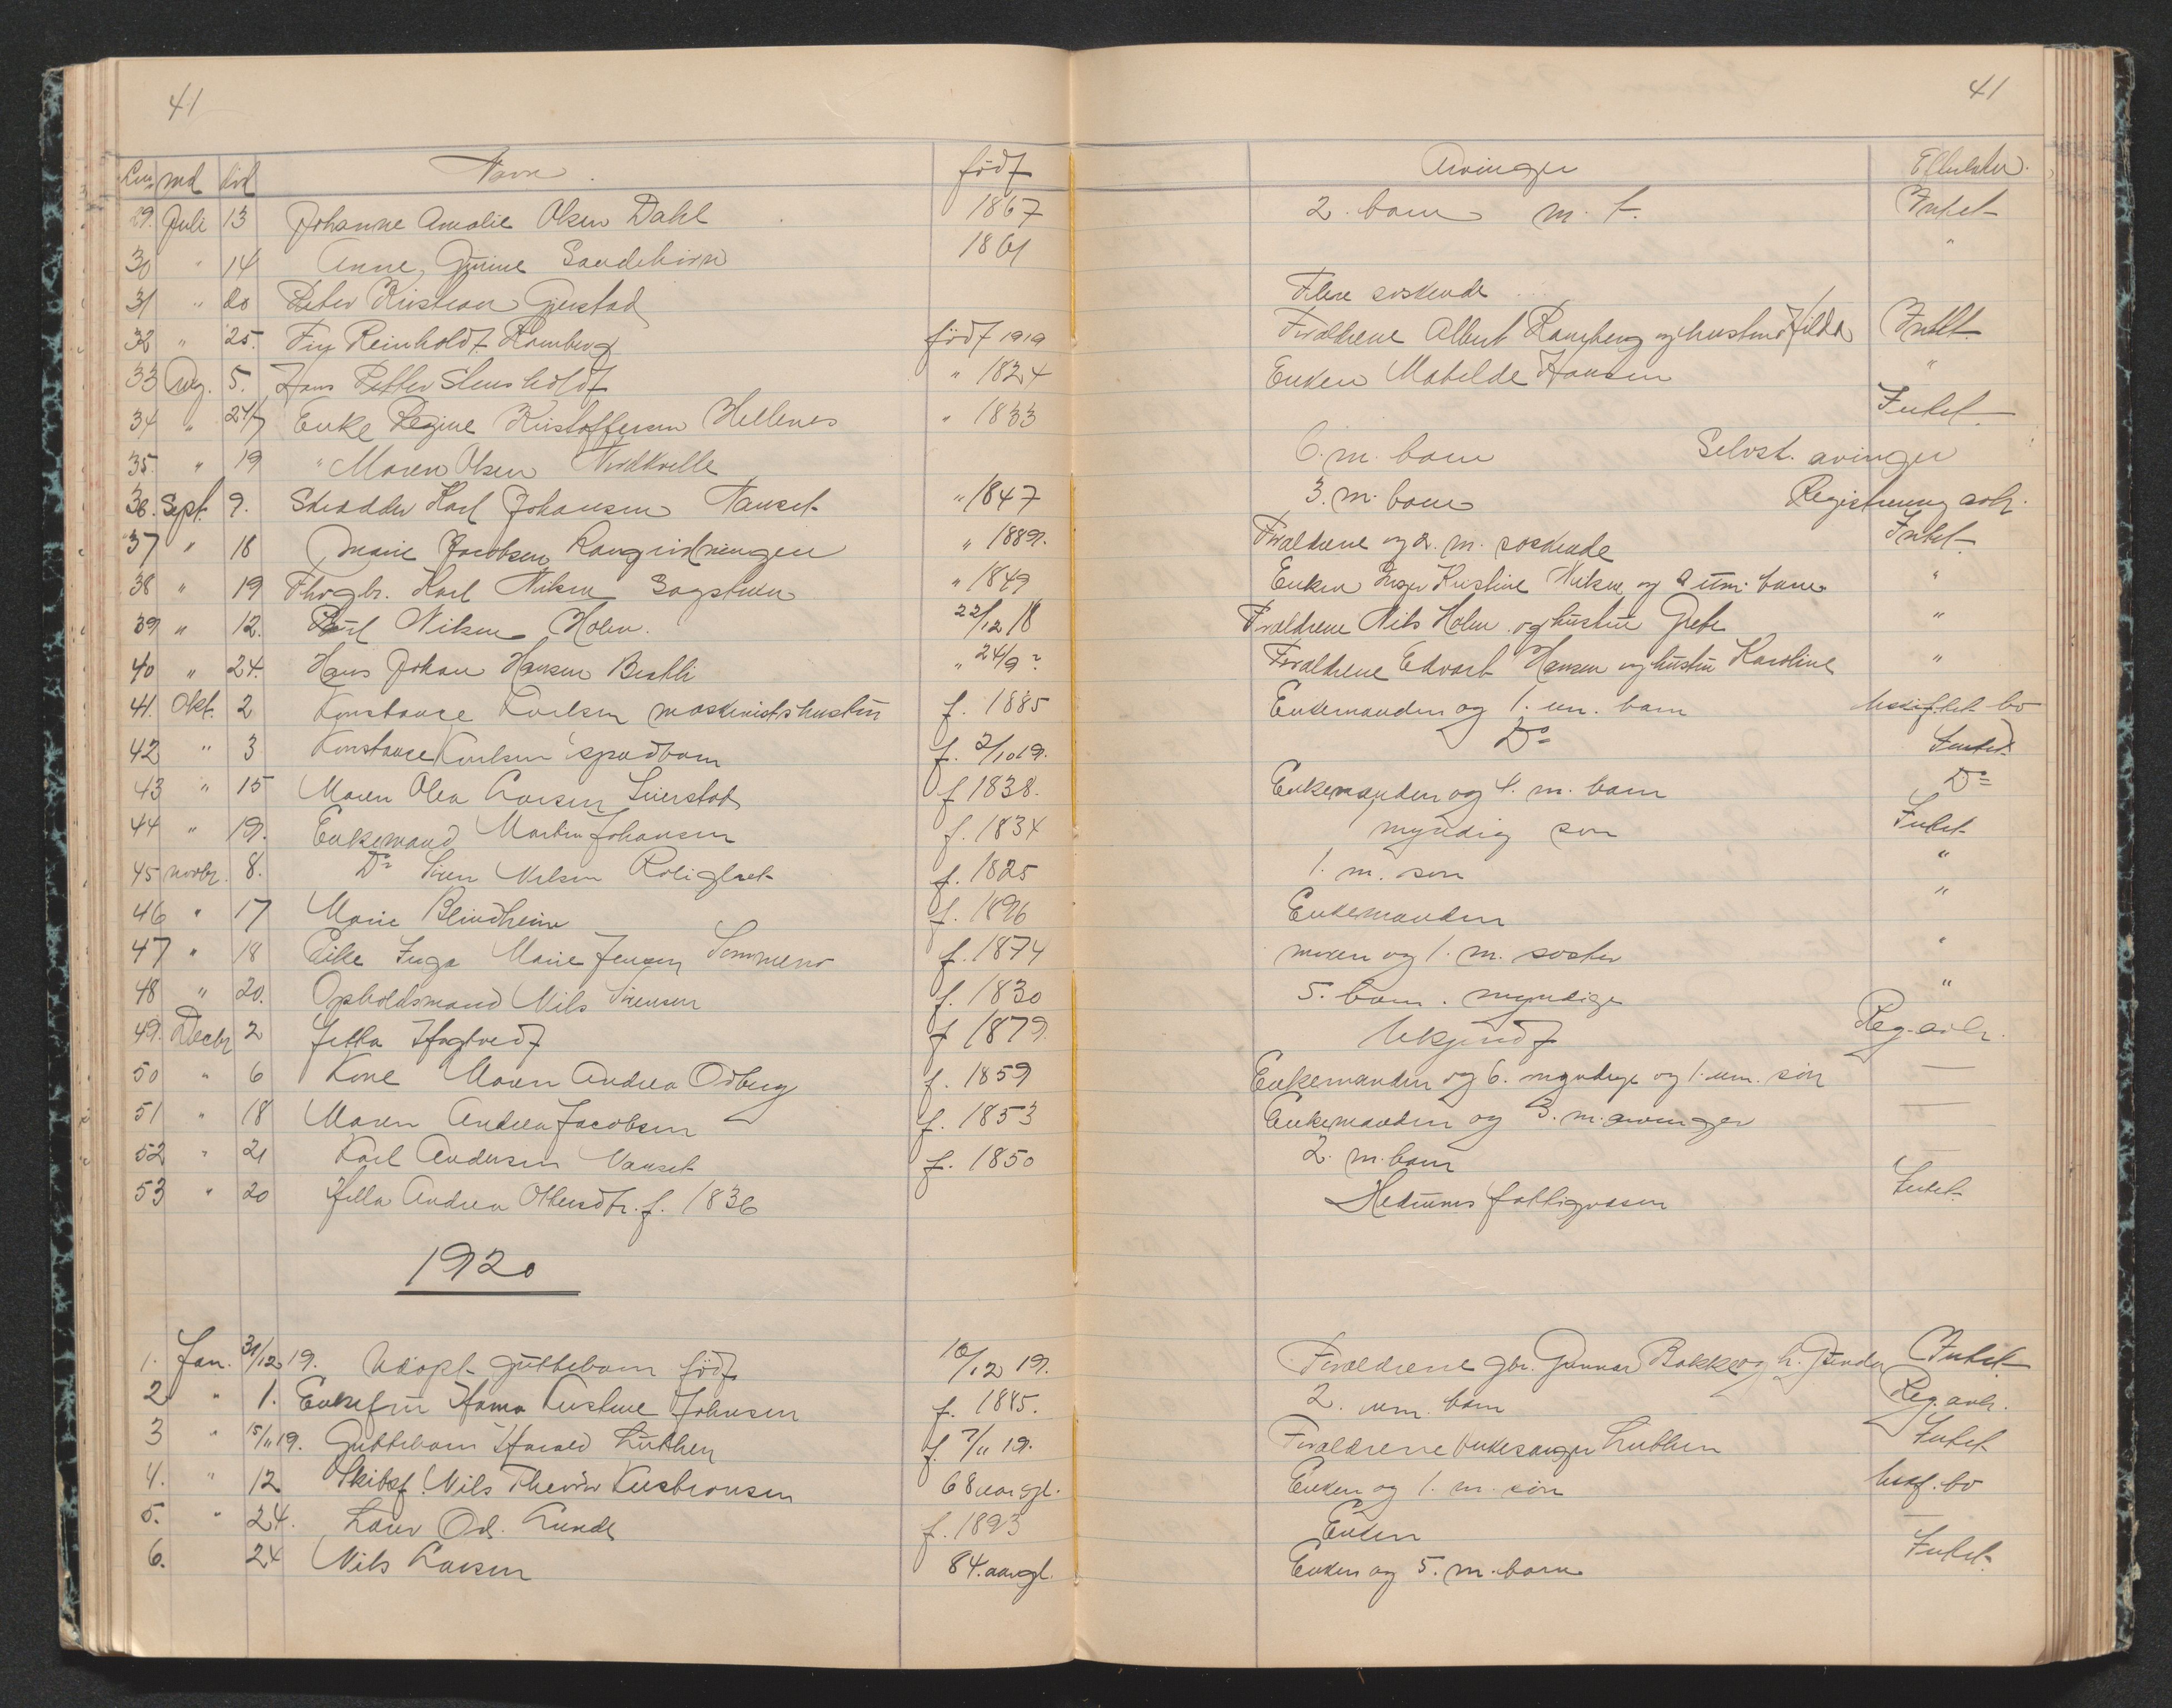 41
41
Lno md død Navn født Arvinger Efterlater
29. Juli 13 Johanne Amalie Olsen Dahl 1867 2. barn m. t. Intet
30 " 14 Anne, Gurine 1861 "
31 " do Peter Kristian Gjerstad Flere søskende
32 " 25. Reinholdt Ramberg født 1919 Forældrene Albert Ramberg og hustru Hilda Intet
33 Aug. 5. Hans Petter " 1824 Enken Matelde Hansen "
34 " 24/7 Enke Regine Kristoffersen Hellenes " 1833 Intet
35. " 19 " Maren Olsen 6. m. barn Selvst. arvinger
36. Sept. 9. Skrædder Karl Johansen Nanset " 1847 3. m. barn Registrering avh.
37 " 18 Marie Jacobsen " 1889. Forældrene og 2. m. søskende Intet
38 " 19 Karl Nilsen " 1849 Enken Inger Kristine Nilsen og um. barn "
39 " 12. Nilsen Holm. 22/12 18 Forældrene Nils Holm og hustru Grete "
40 " 24. Hans Johan Hansen " 24/9 ? Forældrene Edvart Hansen og hustru Karoline "
41. Okt. 2 Konstance Karlsen maskinistshustru f. 1885 Enkemanden og 1. um. barn Uskiftet bo
42 " 3 Konstance Karlsen spædbarn f. 2/10 19. Do Intet
43 " 15 Maren Olea Larsen f 1838. Enkemanden og 4. m. barn Do
44 " 19. Enkemand Martin Johansen f. 1834 myndig søn Intet
45 novbr. 8. Do Nilsen Rolighet f. 1825 1. m. søn "
46 " 17 Marie Blindheim f. 1896 Enkemanden "
47 " 18 Inga Marie Jensen f. 1874 moren og 1. m. søster "
48 " 20. Opholdsmand Nils Sørensen f. 1830 5. barn. myndige "
49. Decbr 2 Jetta Hagtvedt f 1879 Ukjendt Reg. avh.
50 " 6 Kone Maren Andrea Odberg f. 1859 Enkemanden og 6. myndige og 1. um. søn —
51 " 18 Maren Andrea Jacobsen f. 1853 Enkemanden og 3. m. arvinger —
52 " 21 Karl Andersen Nanset f. 1850 2. m. barn
53 " 20 Andrea Ottersdtr. f. 1836 Hedrums fattigvæsen Intet
1920
1. Jan. 31/12 19. Udøpt guttebarn født 10/12 19. Forældrene gbr. Gunnar Bakke og h. Gunda Intet
2 " 1. Enkefru Kristine Johnsen f. 1885. 2. um. barn Reg. avh.
3 " 15/11 19. Guttebarn Harald Lutken f. 7/11 19. Forældrene Lutken Intet
4. " 12 Skibsf. Nils Kristiansen 68 aar gl. Enken og 1. m. søn Uskf. bo
5. " 24. Od. Lunde f. 1893 Enken —
6. 24 Nils Larsen 84. aar gl. Enken og 5. m. barn Intet